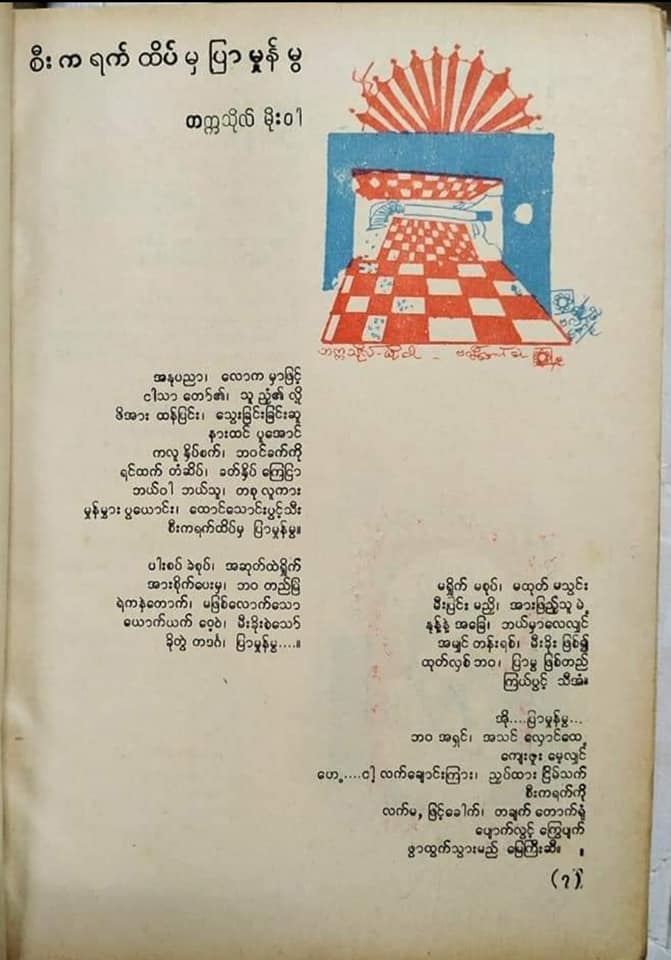 စီးကရက်ထိပ်မှ ပြာမှုန်မွှ
တက္ကသိုလ် မိုးဝါ
တက္ကသိုလ်-မိုးဝါ -
အနုပညာ၊ လောကမှာဖြင့်
ငါသာ တော်၏၊ သူညံ့၏လို့
ဖိအား ထန်ပြင်း၊ သွေးခြင်းခြင်းဆူ
နားထင် ပူအောင်
ကလူ နှိပ်စက်၊ ဘဝင်ခက်ကို
ရင်ထက် တံဆိပ်၊ ခတ်နှိပ် ကြေငြာ
ဘယ်ဝါ ဘယ်သူ၊ တစု လူကား
မှုန်မွှား ပွယောင်း၊ ထောင်သောင်းပွင့်သီး
စီးကရက်ထိပ်မှ ပြာမှုန်မွှ။
ပါးစပ် ခဲစုပ်၊ အဆုတ်ထဲရှိုက်
အားစိုက်ပေးမှ၊ ဘဝ တည်မြဲ
ရဲကနဲတောက်၊ မဖြစ်လောက်သော
ယောက်ယက် ဝေ့ဝဲ၊ မီးခိုးစွဲသော်
ခိုတွဲ တဒင်္ဂ၊ ပြာမှုန်မွှ....။
မရှိုက် မစုပ်၊ မထုတ် မသွင်း
မီးပြင်း မညှိ၊ အားဖြည့်သူ မဲ့
နုန့်နဲ့ အခြေ၊ ဘယ်မှာလေလျှင်
အမျှင် တန်းရစ်၊ မီးခိုး ဖြစ်၍
ထုတ်လှစ် ဘဝ၊ ပြာမွှ ဖြစ်တည်
ကြယ်ပွင့် သီအံ့။
အို....ပြာမှုန်မွှ...
ဘဝ အရှင်၊ အသင် လှောင်ထေ့
ကျေးဇူး မေ့လျှင်
ဟေ့....ငါ့ လက်ချောင်းကြား၊ ညှပ်ထား ငြိမ်သက်
စီးကရက်ကို
လက်မ, ဖြင့်ခေါက်၊ တချက် တောက်ရုံ
ပျောက်လွင့် ကြွေပျက်
ဖွာထွက်သွားမည် မြေကြီးဆီ။ ။
(၇)